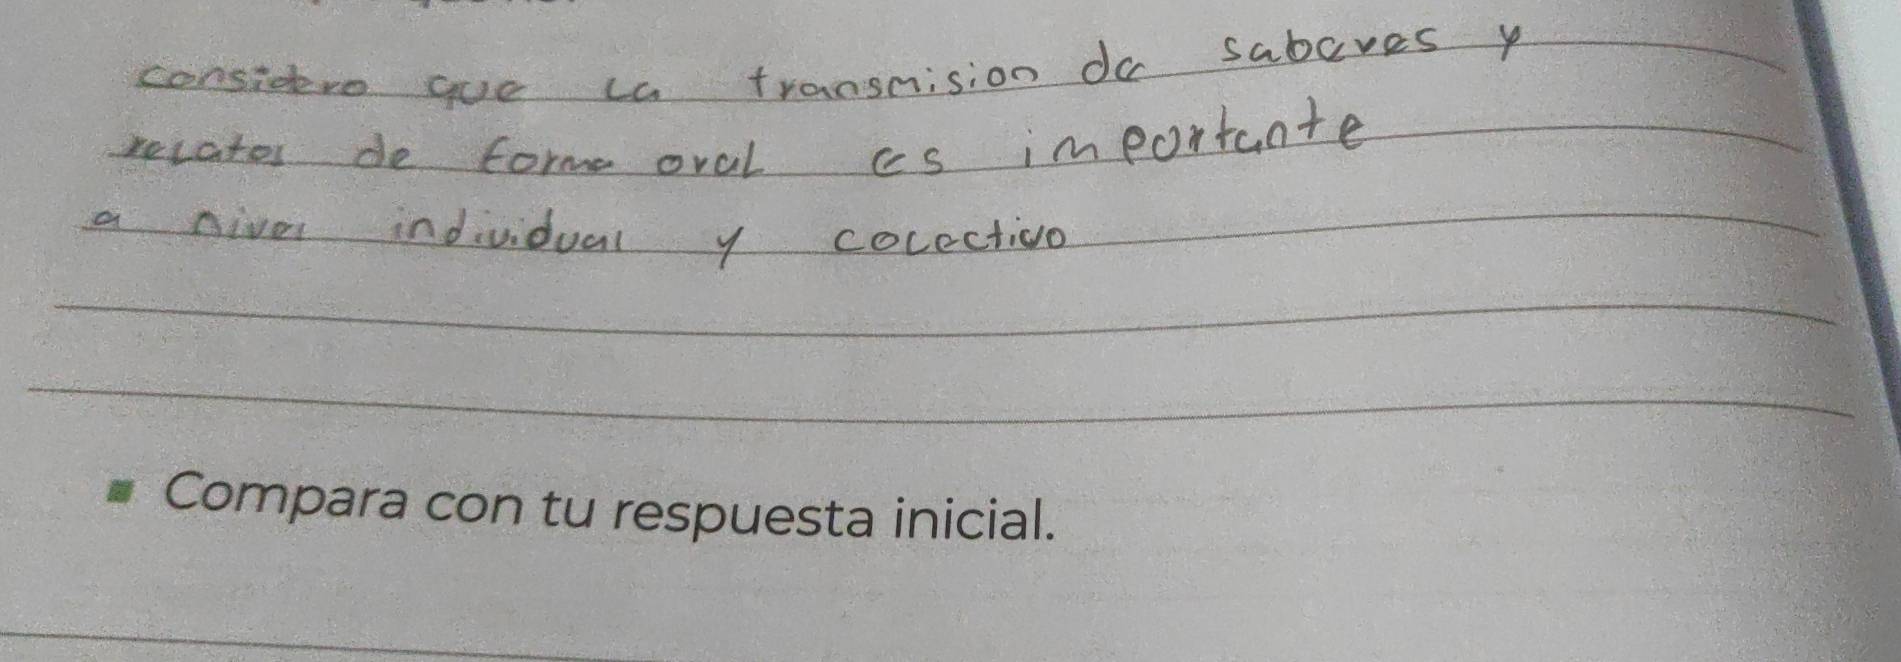 considero que la transmision de saberes y
relatos de forma oral es importante
a nivel individual y colectivo
Compara con tu respuesta inicial.